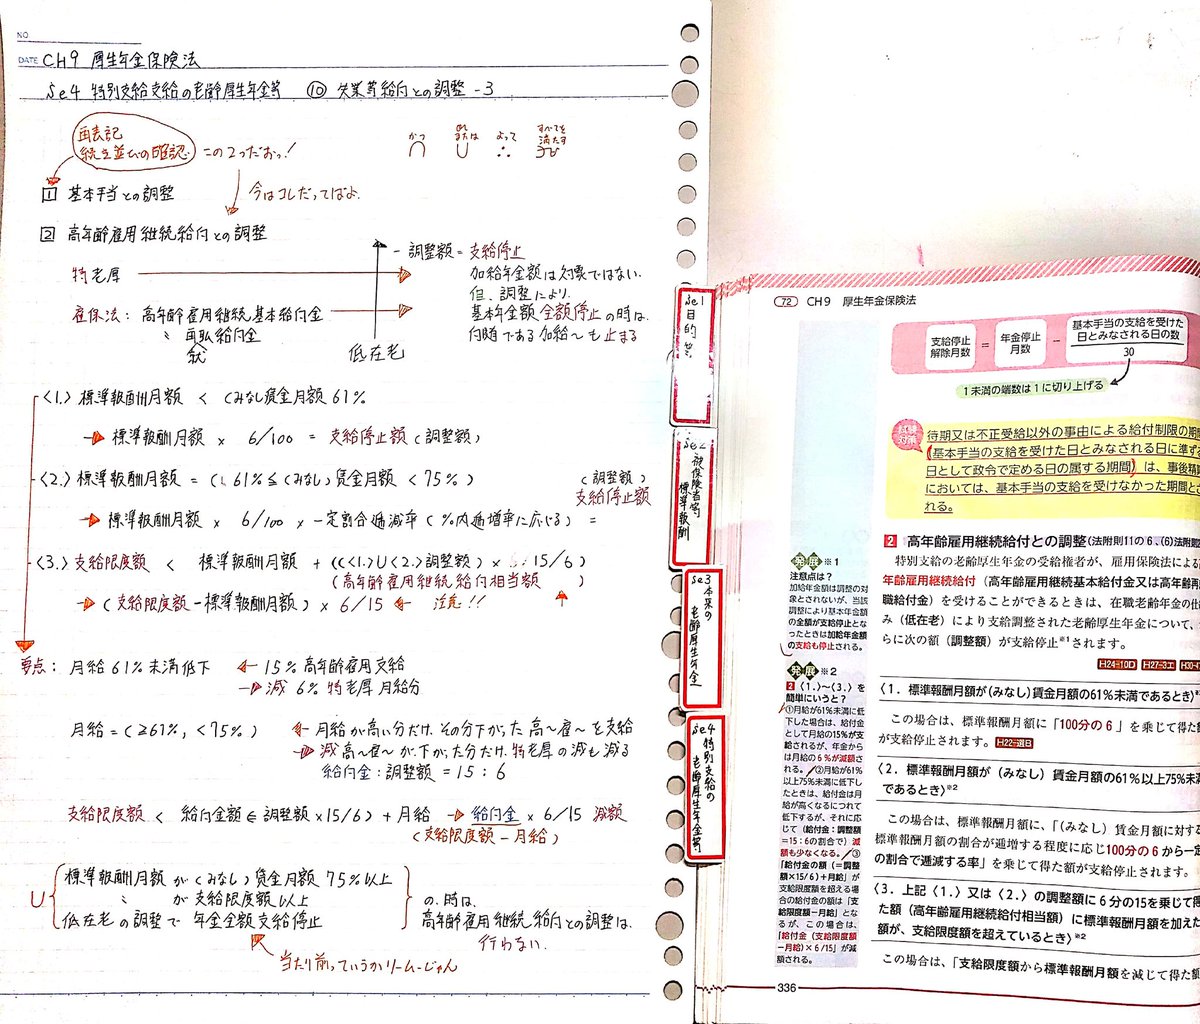 NO.
DATE CH9 厚生年金保険法
Se4 特別支給支給の老齢厚生年金等 ⑩ 失業等給付との調整 -3
再表記
続き並びの確認 この2つだおっ!
かつ 又は または よって すべてを満たす
∩ ∪ ∴
1 基本手当との調整 今はコレだってばよ.
2 高年齢雇用継続給付との調整
特老厚
雇保法: 高年齢雇用継続基本給付金
〃 再就職給付金
就
低在老
- 調整額 = 支給停止
加給年金額は対象ではない.
但、調整により.
基本年金額 全額停止の時は.
付随である加給〜も止まる
〈1.〉標準報酬月額 < (みなし)賃金月額 61%
標準報酬月額 × 6/100 = 支給停止額 (調整額)
〈2.〉標準報酬月額 = ( 61% ≦ (みなし)賃金月額 < 75% )
標準報酬月額 × 6/100 × 一定割合逓減率 (%内逓増率に応じる) =
(調整額)
支給停止額
〈3.〉支給限度額 < 標準報酬月額 + ((〈1.〉∪〈2.〉調整額) × 15/6)
(高年齢雇用継続給付相当額)
(支給限度額-標準報酬月額) × 6/15 ← 注意!!
要点: 月給 61%未満低下 ← 15% 高年齢雇用支給
減 6% 特老厚 月給分
月給 = (≧61%, < 75%) ← 月給が高い分だけ、その分下がった 高〜雇〜を支給
減 高〜雇〜が、下がった分だけ、特老厚の減も減る
給付金:調整額 = 15:6
支給限度額 < 給付金額 ∈ 調整額 × 15/6) + 月給 → 給付金 × 6/15 減額
(支給限度額-月給)
∪ 標準報酬月額が(みなし)賃金月額 75%以上
〃 が支給限度額以上
低在老の調整で 年金全額支給停止
の.時は.
高年齢雇用継続給付との調整は.
行わない.
当たり前っていうかリームーじゃん
Se1 目的等
Se2 被保険者等 標準報酬
Se3 本来の 老齢厚生年金
Se4 特別支給の 老齢厚生年金等
72 CH9 厚生年金保険法
支給停止解除月数 = 年金停止月数 − 基本手当の支給を受けた日とみなされる日の数
30
1未満の端数は1に切り上げる
試験対策
待期又は不正受給以外の事由による給付制限の期
(基本手当の支給を受けた日とみなされる日に準ず
日として政令で定める日の属する期間)は、事後精
においては、基本手当の支給を受けなかった期間と
れる。
2 高年齢雇用継続給付との調整(法附則11の6、(6)法附則
特別支給の老齢厚生年金の受給権者が、雇用保険法による高
年齢雇用継続給付(高年齢雇用継続基本給付金又は高年齢再
職給付金)を受けることができるときは、在職老齢年金の仕
み(低在老)により支給調整された老齢厚生年金について、
らに次の額(調整額)が支給停止※1されます。
H24-10D H27-3エ H30-
〈1. 標準報酬月額が(みなし)賃金月額の61%未満であるとき〉※
この場合は、標準報酬月額に「100分の6」を乗じて得た額
が支給停止されます。 H22-選B
〈2. 標準報酬月額が(みなし)賃金月額の61%以上75%未
であるとき〉※2
この場合は、標準報酬月額に、「(みなし)賃金月額に対する
標準報酬月額の割合が逓増する程度に応じ100分の6から一定
の割合で逓減する率」を乗じて得た額が支給停止されます。
〈3. 上記〈1.〉又は〈2.〉の調整額に6分の15を乗じて得
た額(高年齢雇用継続給付相当額)に標準報酬月額を加えた
額が、支給限度額を超えているとき〉※2
この場合は、「支給限度額から標準報酬月額を減じて得た額
発展 ※1
注意点は?
加給年金額は調整の対
象とされないが、当該
調整により基本年金額
の全額が支給停止とな
ったときは加給年金額
の支給も停止される。
発展 ※2
2〈1.〉〜〈3.〉を
簡単にいうと?
①月給が61%未満に低
下した場合は、給付金
として月給の15%が支
給されるが、年金から
は月給の6%が減額さ
れる。②月給が61%
以上75%未満に低下し
たときは、給付金は月給
が高くなるにつれて
低下するが、それに応
じて(給付金:調整額
=15:6の割合で)減
額も少なくなる。③
「給付金の額(=調整
額×15/6)+月給」が
支給限度額を超える場
合の給付金の額は「支
給限度額-月給」とな
るが、この場合は、
「給付金(支給限度額
-月給)×6/15」が減
額される。
336